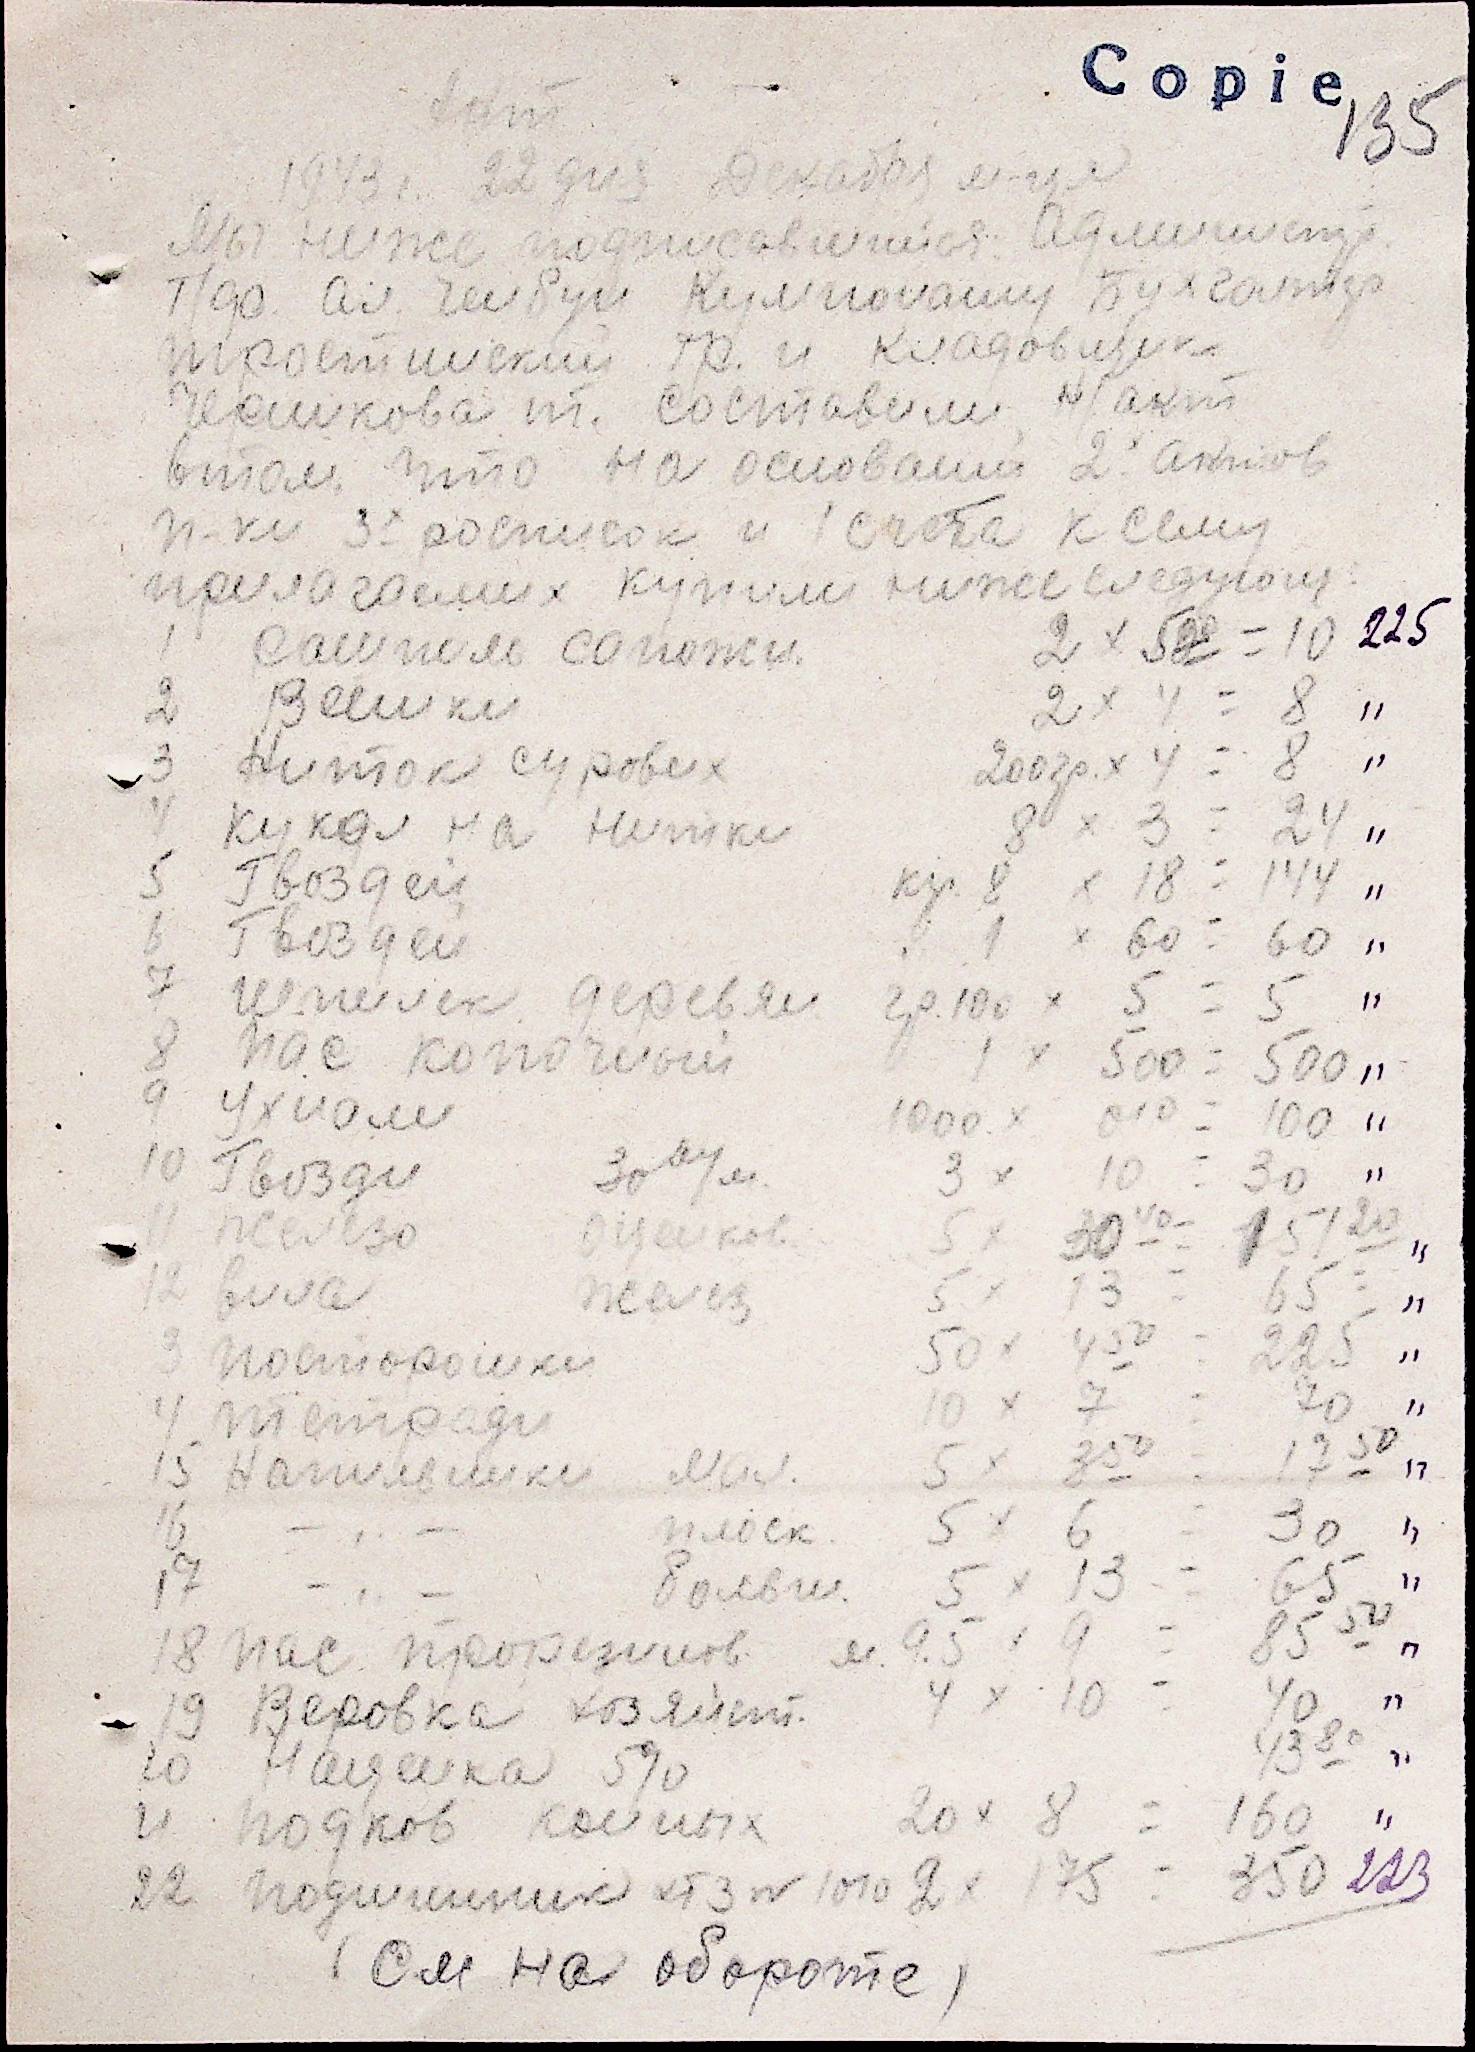 Copie
135
Акт
1943 г. 22 дня Декабря м-ця
Мы ниже подписавшиеся: Администр.
Т/до. Ал. Чембун Кумпонашу Бухгалтер
Тростинский Гр. и Кладовщик
Чрликова т. составили н/акт
втом что на основании 2х актов
п-ки 3х росписок и 1 счета к сему
прилагаемих купили нижеследующ:
1 Рашпиль сапожн. 2 × 5 00 = 10 225
2 Веники 2 × 4 = 8 "
3 Ниток суровых 200 гр. × 4 = 8 "
4 Кукол на нитки 8 × 3 = 24 "
5 Гвоздей кг. 8 × 18 = 144 "
6 Гвоздей 1 × 60 = 60 "
7 Шпилек деревян. гр. 100 × 5 = 5 "
8 Пас копочный 1 × 500 = 500 "
9 Ухнали 1000 × 010 = 100 "
10 Гвозди 30 аум. 3 × 10 = 30 "
11 Железо оцинков. 5 × 30 40 = 151 20 "
12 Вила желез 5 × 13 = 65 = "
3 Посторонки 50 × 4 50 = 225 "
4 Тетради 10 × 7 = 70 "
15 Напильники мал. 5 × 3 50 = 17 50 "
16 — " — плоск. 5 × 6 = 30 "
17 — " — больш. 5 × 13 = 65 "
18 Пас прорезинов. м. 9.5 × 9 = 85 50 "
19 Веровка хозяйст. 4 × 10 = 40 "
20 Наценка 5% 43 80 "
21 Подков конных 20 × 8 = 160 "
22 Подшипник хтз № 1010 2 × 175 = 350 223
(См на обороте)